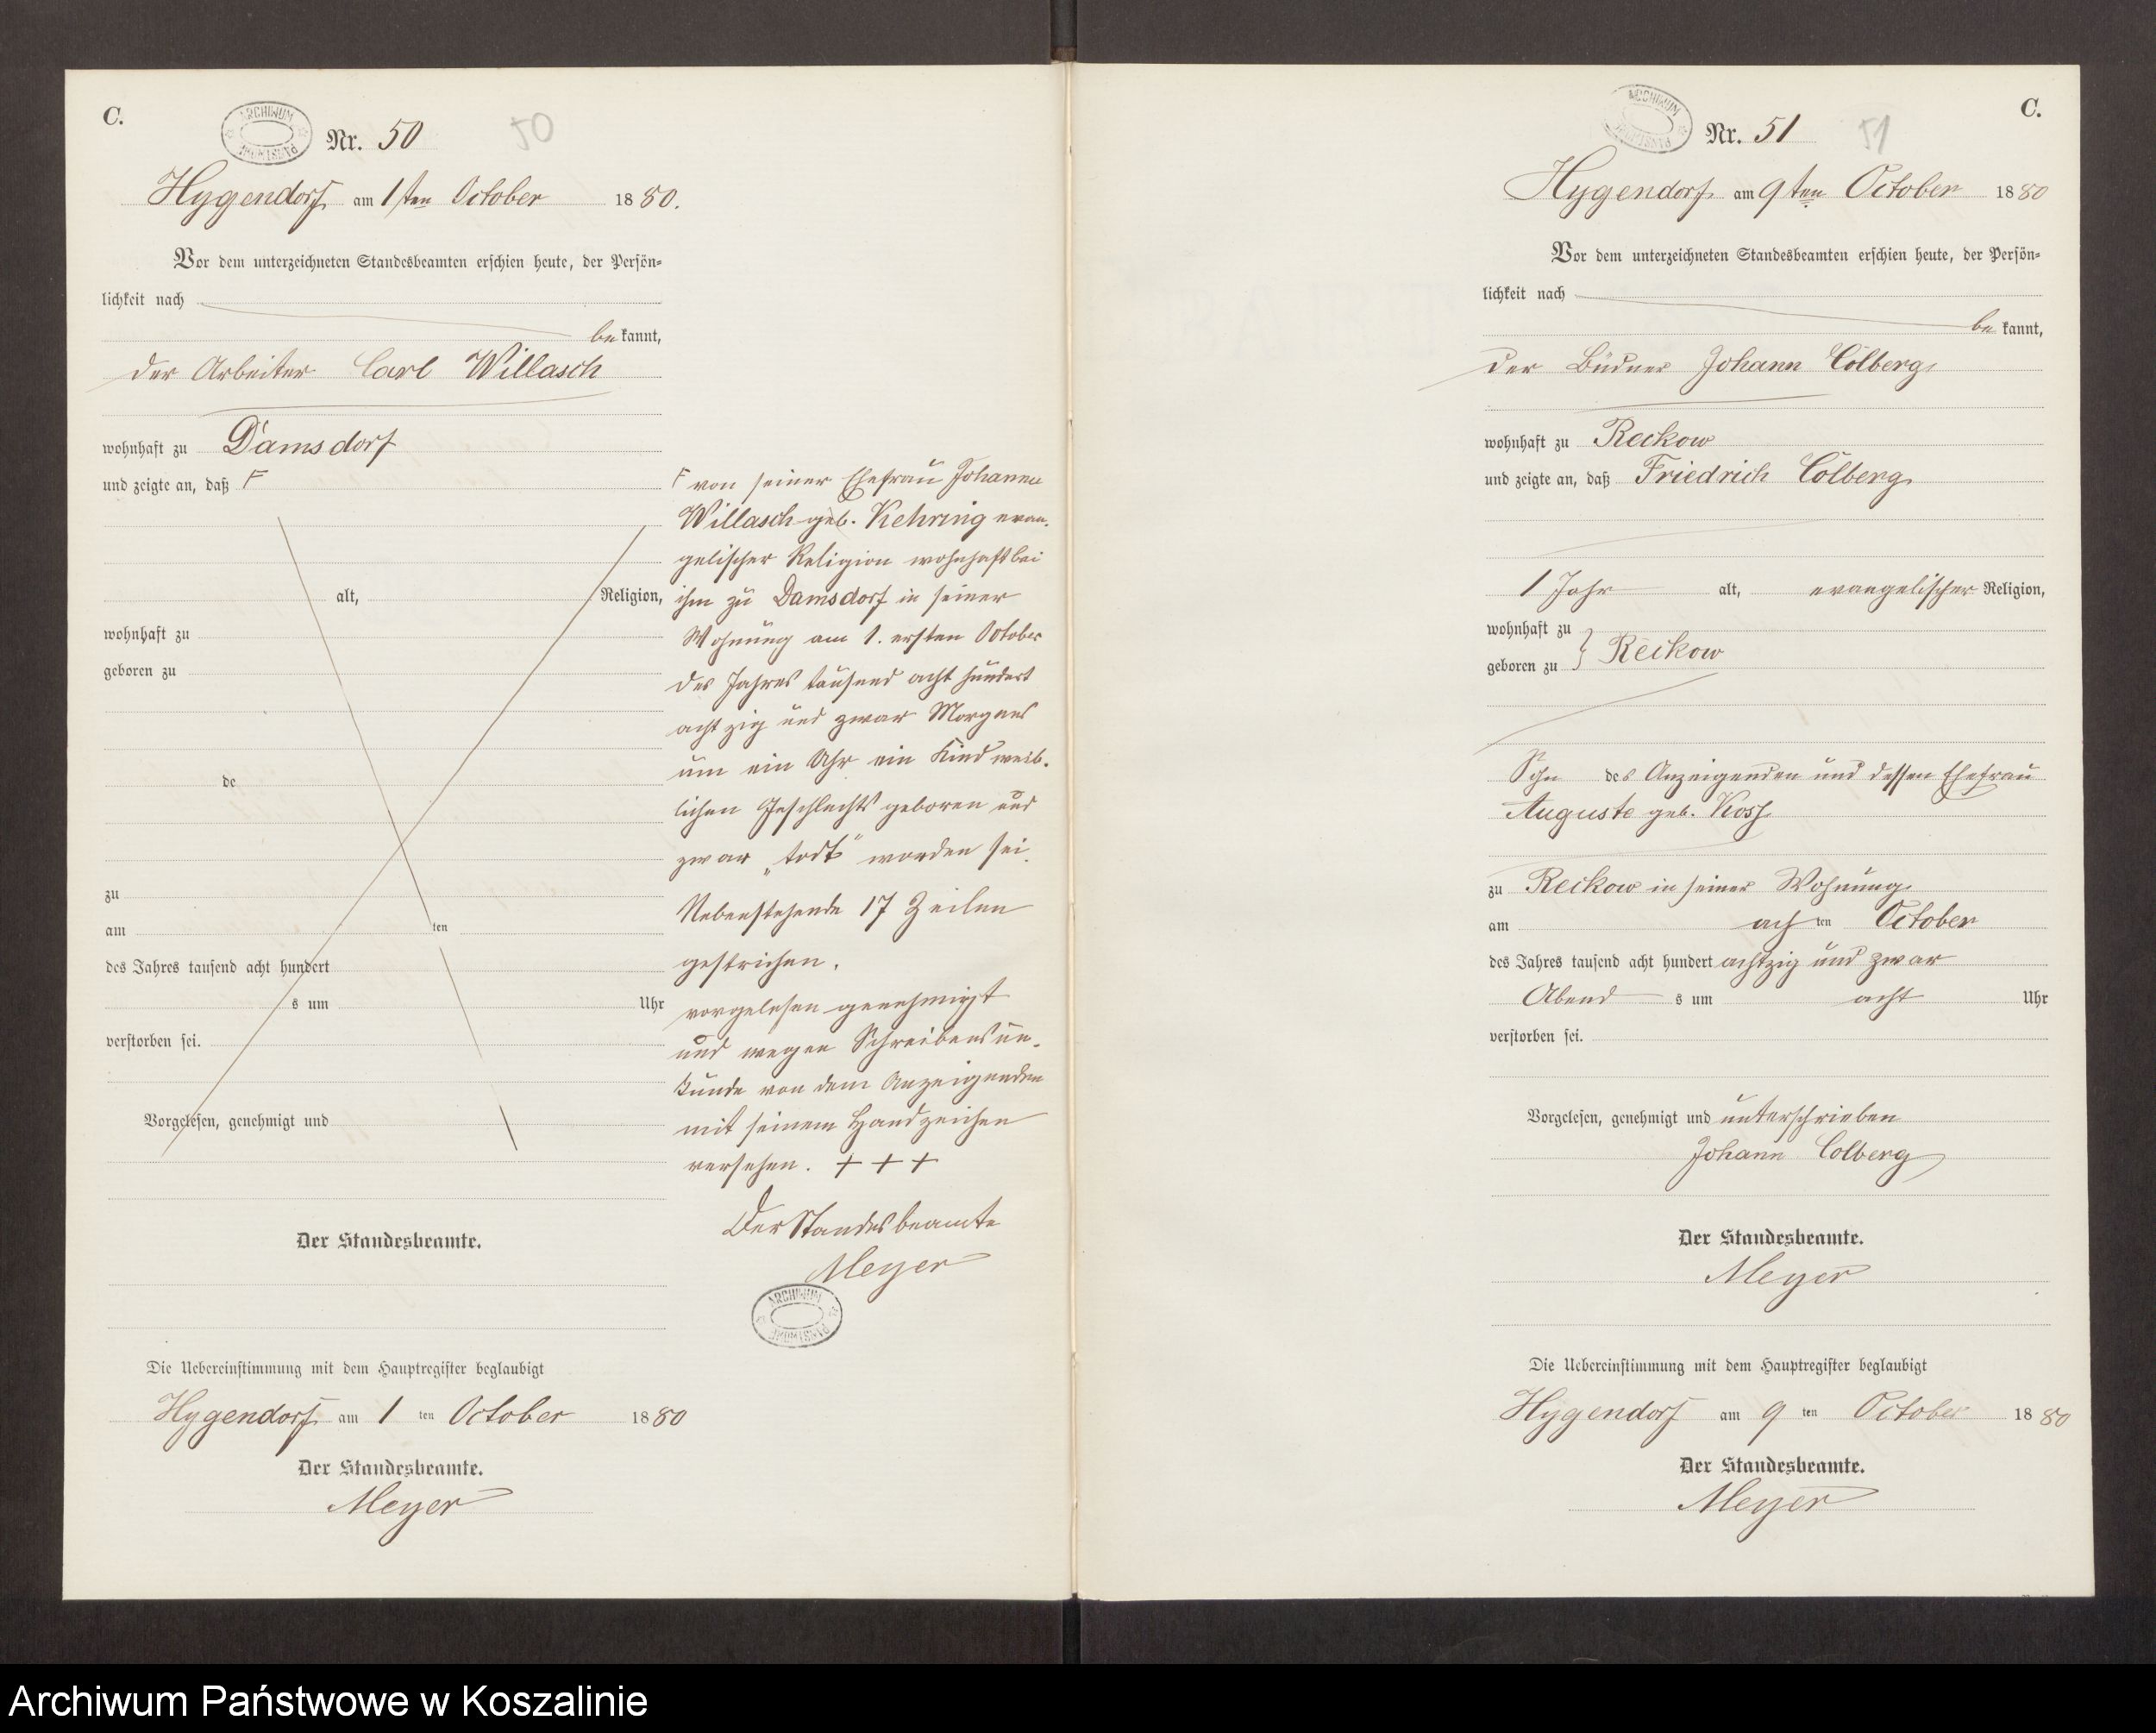 C.
ARCHIWUM PAŃSTWOWE
Nr. 50
50
Hygendorf am 1ten October 1880.
Vor dem unterzeichneten Standesbeamten erschien heute, der Persön-
lichkeit nach
be kannt,
der Arbeiter Carl Willasch
wohnhaft zu Damsdorf
und zeigte an, daß F
alt, Religion,
wohnhaft zu
geboren zu
de
zu
am ten
des Jahres tausend acht hundert
s um Uhr
verstorben sei.
Vorgelesen, genehmigt und
Der Standesbeamte.
Die Uebereinstimmung mit dem Hauptregister beglaubigt
Hygendorf am 1 ten October 1880
Der Standesbeamte.
Meyer
F von seiner Ehefrau Johanne
Willasch geb. Kehring evan-
gelischer Religion wohnhaft bei
ihm zu Damsdorf in seiner
Wohnung am 1. ersten October
des Jahres tausend acht hundert
achtzig und zwar Morgens
um ein Uhr ein Kind weib-
lichen Geschlechts geboren und
zwar „todt“ worden sei.
Nebenstehende 17 Zeilen
gestrichen.
vorgelesen genehmigt
und wegen Schreibensun-
kunde von dem Anzeigenden
mit seinem Handzeichen
versehen. + + +
Der Standesbeamte
Meyer
ARCHIWUM PAŃSTWOWE
C.
ARCHIWUM PAŃSTWOWE
Nr. 51
51
Hygendorf am 9ten October 1880
Vor dem unterzeichneten Standesbeamten erschien heute, der Persön-
lichkeit nach
be kannt,
der Büdner Johann Colberg
wohnhaft zu Reckow
und zeigte an, daß Friedrich Colberg
1 Jahr alt, evangelischer Religion,
wohnhaft zu
geboren zu } Reckow
Sohn des Anzeigenden und dessen Ehefrau
Auguste geb. Koss
zu Reckow in seiner Wohnung
am ach ten October
des Jahres tausend acht hundert achtzig und zwar
Abend s um acht Uhr
verstorben sei.
Vorgelesen, genehmigt und unterschrieben
Johann Colberg
Der Standesbeamte.
Meyer
Die Uebereinstimmung mit dem Hauptregister beglaubigt
Hygendorf am 9 ten October 1880
Der Standesbeamte.
Meyer
Archiwum Państwowe w Koszalinie